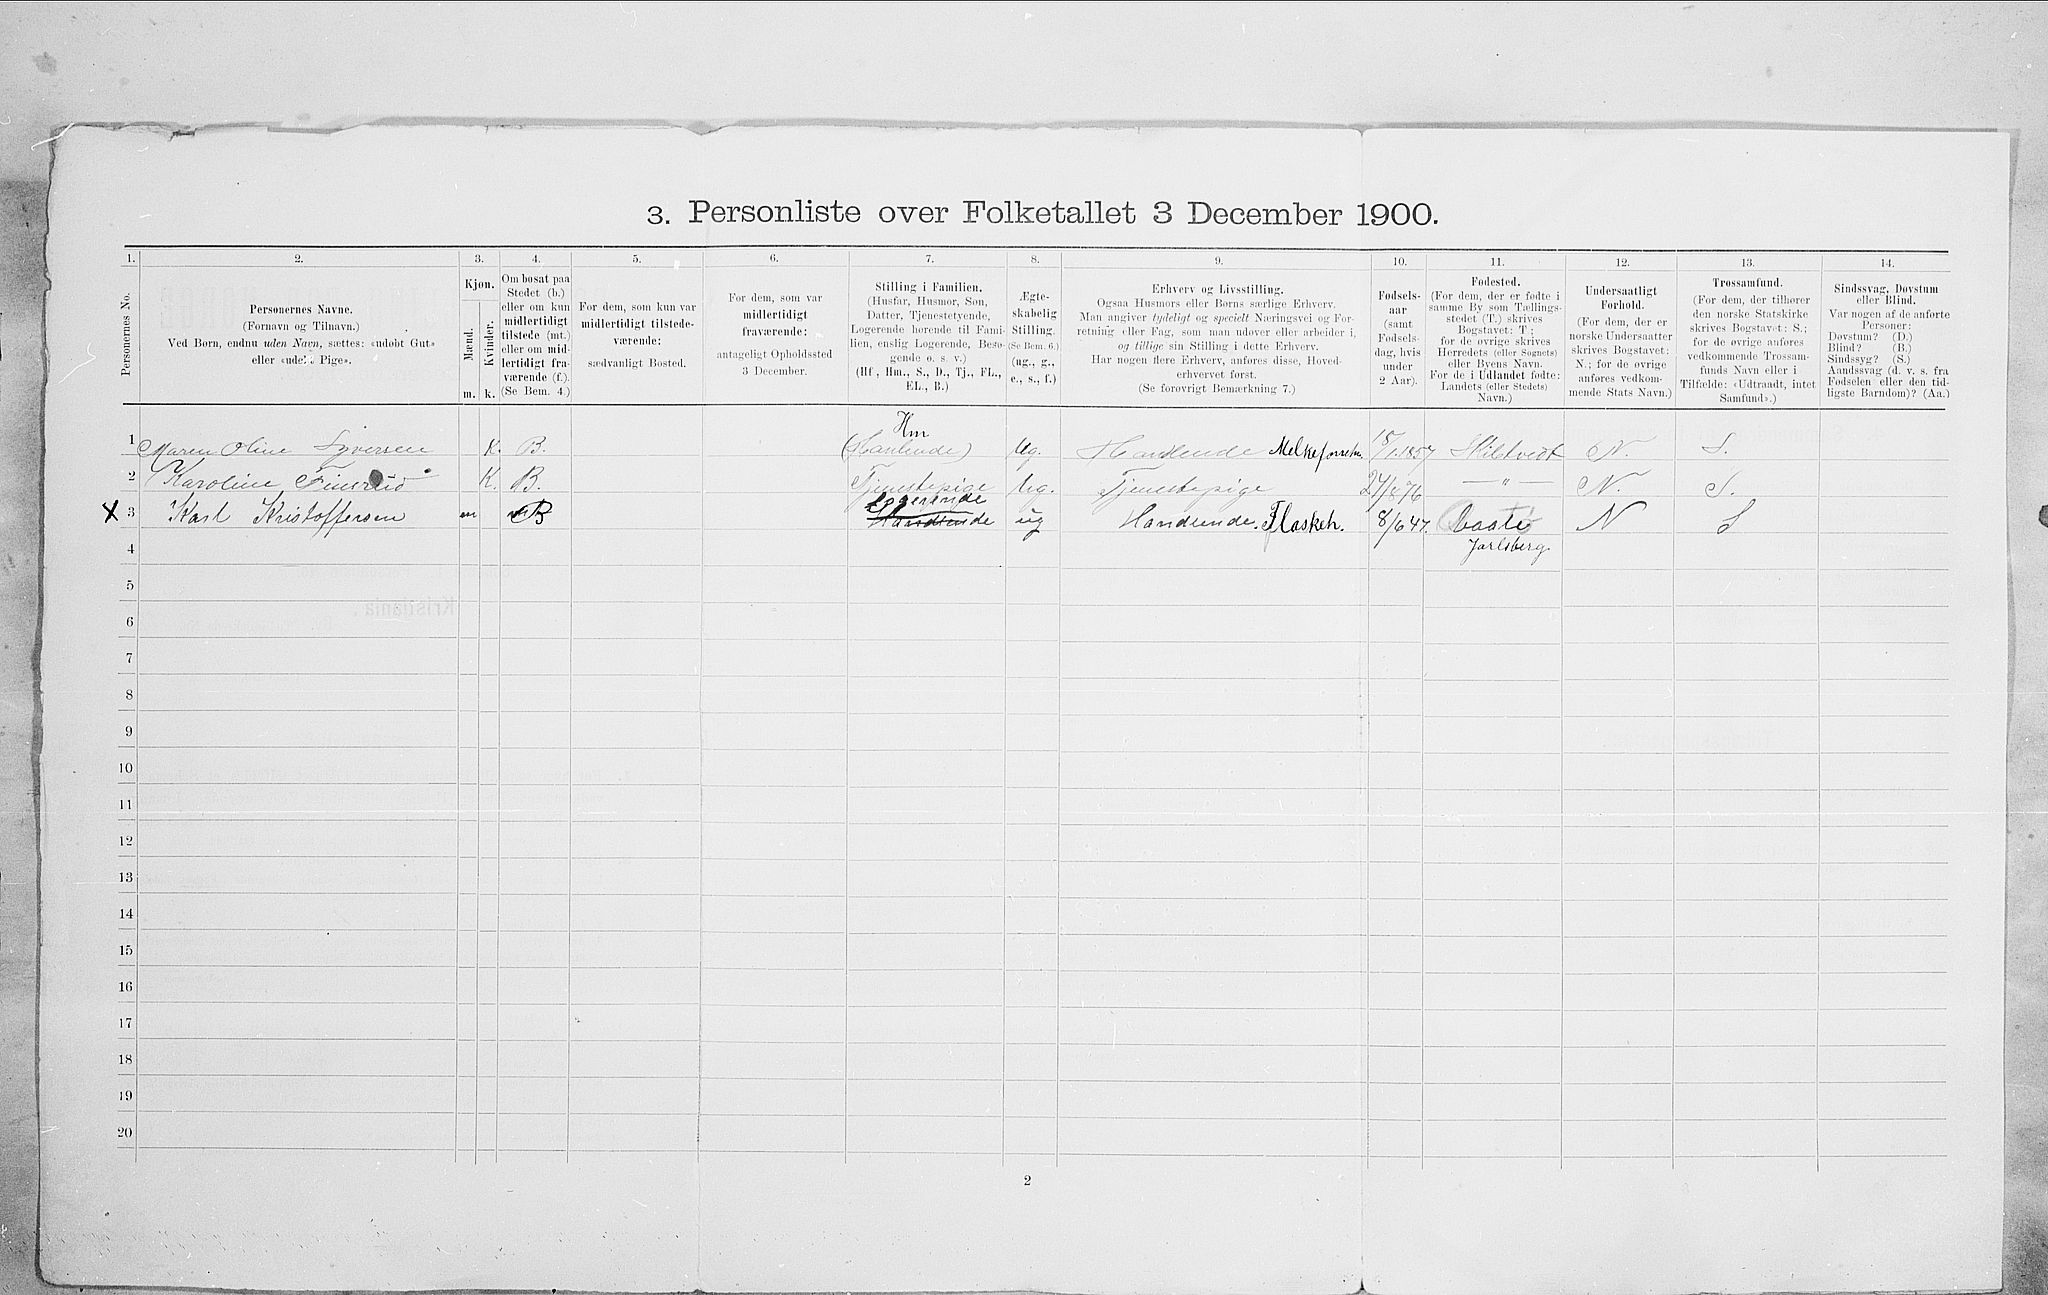 3. Personliste over Folketallet 3 December 1900.
1. 2. 3. 4. 5. 6. 7. 8. 9. 10. 11. 12. 13. 14.
Personernes No.
Personernes Navne.
(Fornavn og Tilnavn.)
Ved Børn, endnu uden Navn, sættes: «udøbt Gut»
eller «udøbt Pige».
Kjøn.
Mænd.
Kvinder.
m. k.
Om bosat paa
Stedet (b.)
eller om kun
midlertidigt
tilstede (mt.)
eller om mid-
lertidigt fra-
værende (f.).
(Se Bem. 4.)
For dem, som kun var
midlertidigt tilstede-
værende:
sædvanligt Bosted.
For dem, som var
midlertidigt
fraværende:
antageligt Opholdssted
3 December.
Stilling i Familien.
(Husfar, Husmor, Søn,
Datter, Tjenestetyende,
Logerende hørende til Fami-
lien, enslig Logerende, Besø-
gende o. s. v.)
(Hf., Hm., S., D., Tj., FL.,
EL., B.)
Ægte-
skabelig
Stilling.
(Se Bem. 6.)
(ug., g.,
e., s., f.)
Erhverv og Livsstilling.
Ogsaa Husmors eller Børns særlige Erhverv.
Man angiver tydeligt og specielt Næringsvei og For-
retning eller Fag, som man udøver eller arbeider i,
og tillige sin Stilling i dette Erhverv.
Har nogen flere Erhverv, anføres disse, Hoved-
erhvervet først.
(Se forøvrigt Bemærkning 7.)
Fødsels-
aar
(samt
Fødsels-
dag, hvis
under
2 Aar).
Fødested.
(For dem, der er fødte i
samme By som Tællings-
stedet (T.) skrives
Bogstavet: T.;
for de øvrige skrives
Herredets (eller Sognets)
eller Byens Navn.
For de i Udlandet fødte:
Landets (eller Stedets)
Navn.)
Undersaatligt
Forhold.
(For dem, der er
norske Undersaatter
skrives Bogstavet:
N.; for de øvrige
anføres vedkom-
mende Stats Navn.)
Trossamfund.
(For dem, der tilhører
den norske Statskirke
skrives Bogstavet: S.;
for de øvrige anføres
vedkommende Trossam-
funds Navn eller i
Tilfælde: «Udtraadt, intet
Samfund».)
Sindssvag, Døvstum
eller Blind.
Var nogen af de anførte
Personer:
Døvstum? (D.)
Blind? (B.)
Sindssyg? (S.)
Aandssvag (d. v. s. fra
Fødselen eller den tid-
ligste Barndom)? (Aa.)
Hm
1 Maren Oline Syversen K. B. (Hanlende) Ug. Handlende Melkeforretn. 18/1 1857 Skibtvedt N. S.
2 Karoline Finsrud K. B. Tjenestepige Ug. Tjenestepige 24/8 76 — " — N. S.
Logerende
X 3 Karl Kristoffersen m B Handlende ug Handlende. Flaskeh. 8/6 47. Vaate N S
4 Jarlsberg.
5
6
7
8
9
10
11
12
13
14
15
16
17
18
19
20
2